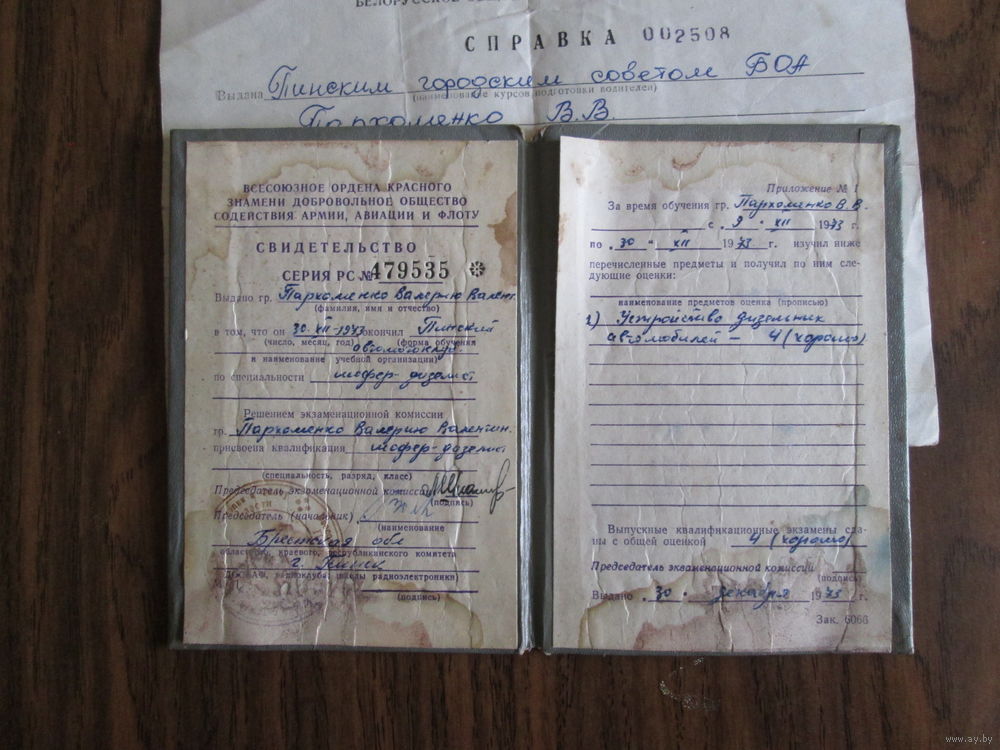 БЕЛОРУССКОЕ
СПРАВКА 002508
Выдана Пинским городским советом БОА
(наименование курсов подготовки водителей)
Пархоменко В.В.
ВСЕСОЮЗНОЕ ОРДЕНА КРАСНОГО
ЗНАМЕНИ ДОБРОВОЛЬНОЕ ОБЩЕСТВО
СОДЕЙСТВИЯ АРМИИ, АВИАЦИИ И ФЛОТУ
СВИДЕТЕЛЬСТВО
СЕРИЯ РС № 479535
Выдано гр. Пархоменко Валерию Валент.
(фамилия, имя и отчество)
в том, что он 30-XII-1973 окончил Пинский
(число, месяц, год) (форма обучения
автомотоклуб
и наименование учебной организации)
по специальности шофер-дизелист
Решением экзаменационной комиссии
гр. Пархоменко Валерию Валентин.
присвоена квалификация шофер-дизелист
(специальность, разряд, класс)
Председатель экзаменационной комиссии
(подпись)
Председатель (начальник)
(наименование
Брестская обл
областного, краевого, республиканского комитета
г. Пинск
ДОСААФ, радиоклуба, школы радиоэлектроники)
(подпись)
Приложение № 1
За время обучения гр. Пархоменко В.В.
с 9 · XII 1973 г.
по 30 · XII 1973 г. изучил ниже
перечисленные предметы и получил по ним сле-
дующие оценки:
наименование предметов оценка (прописью)
1) Устройство дизельных
автомобилей - 4 (хорошо)
Выпускные квалификационные экзамены сда-
ны с общей оценкой 4 (хорошо)
Председатель экзаменационной комиссии
(подпись)
Выдано 30 · декабря 1973 г.
Зак. 6066
www.ay.by